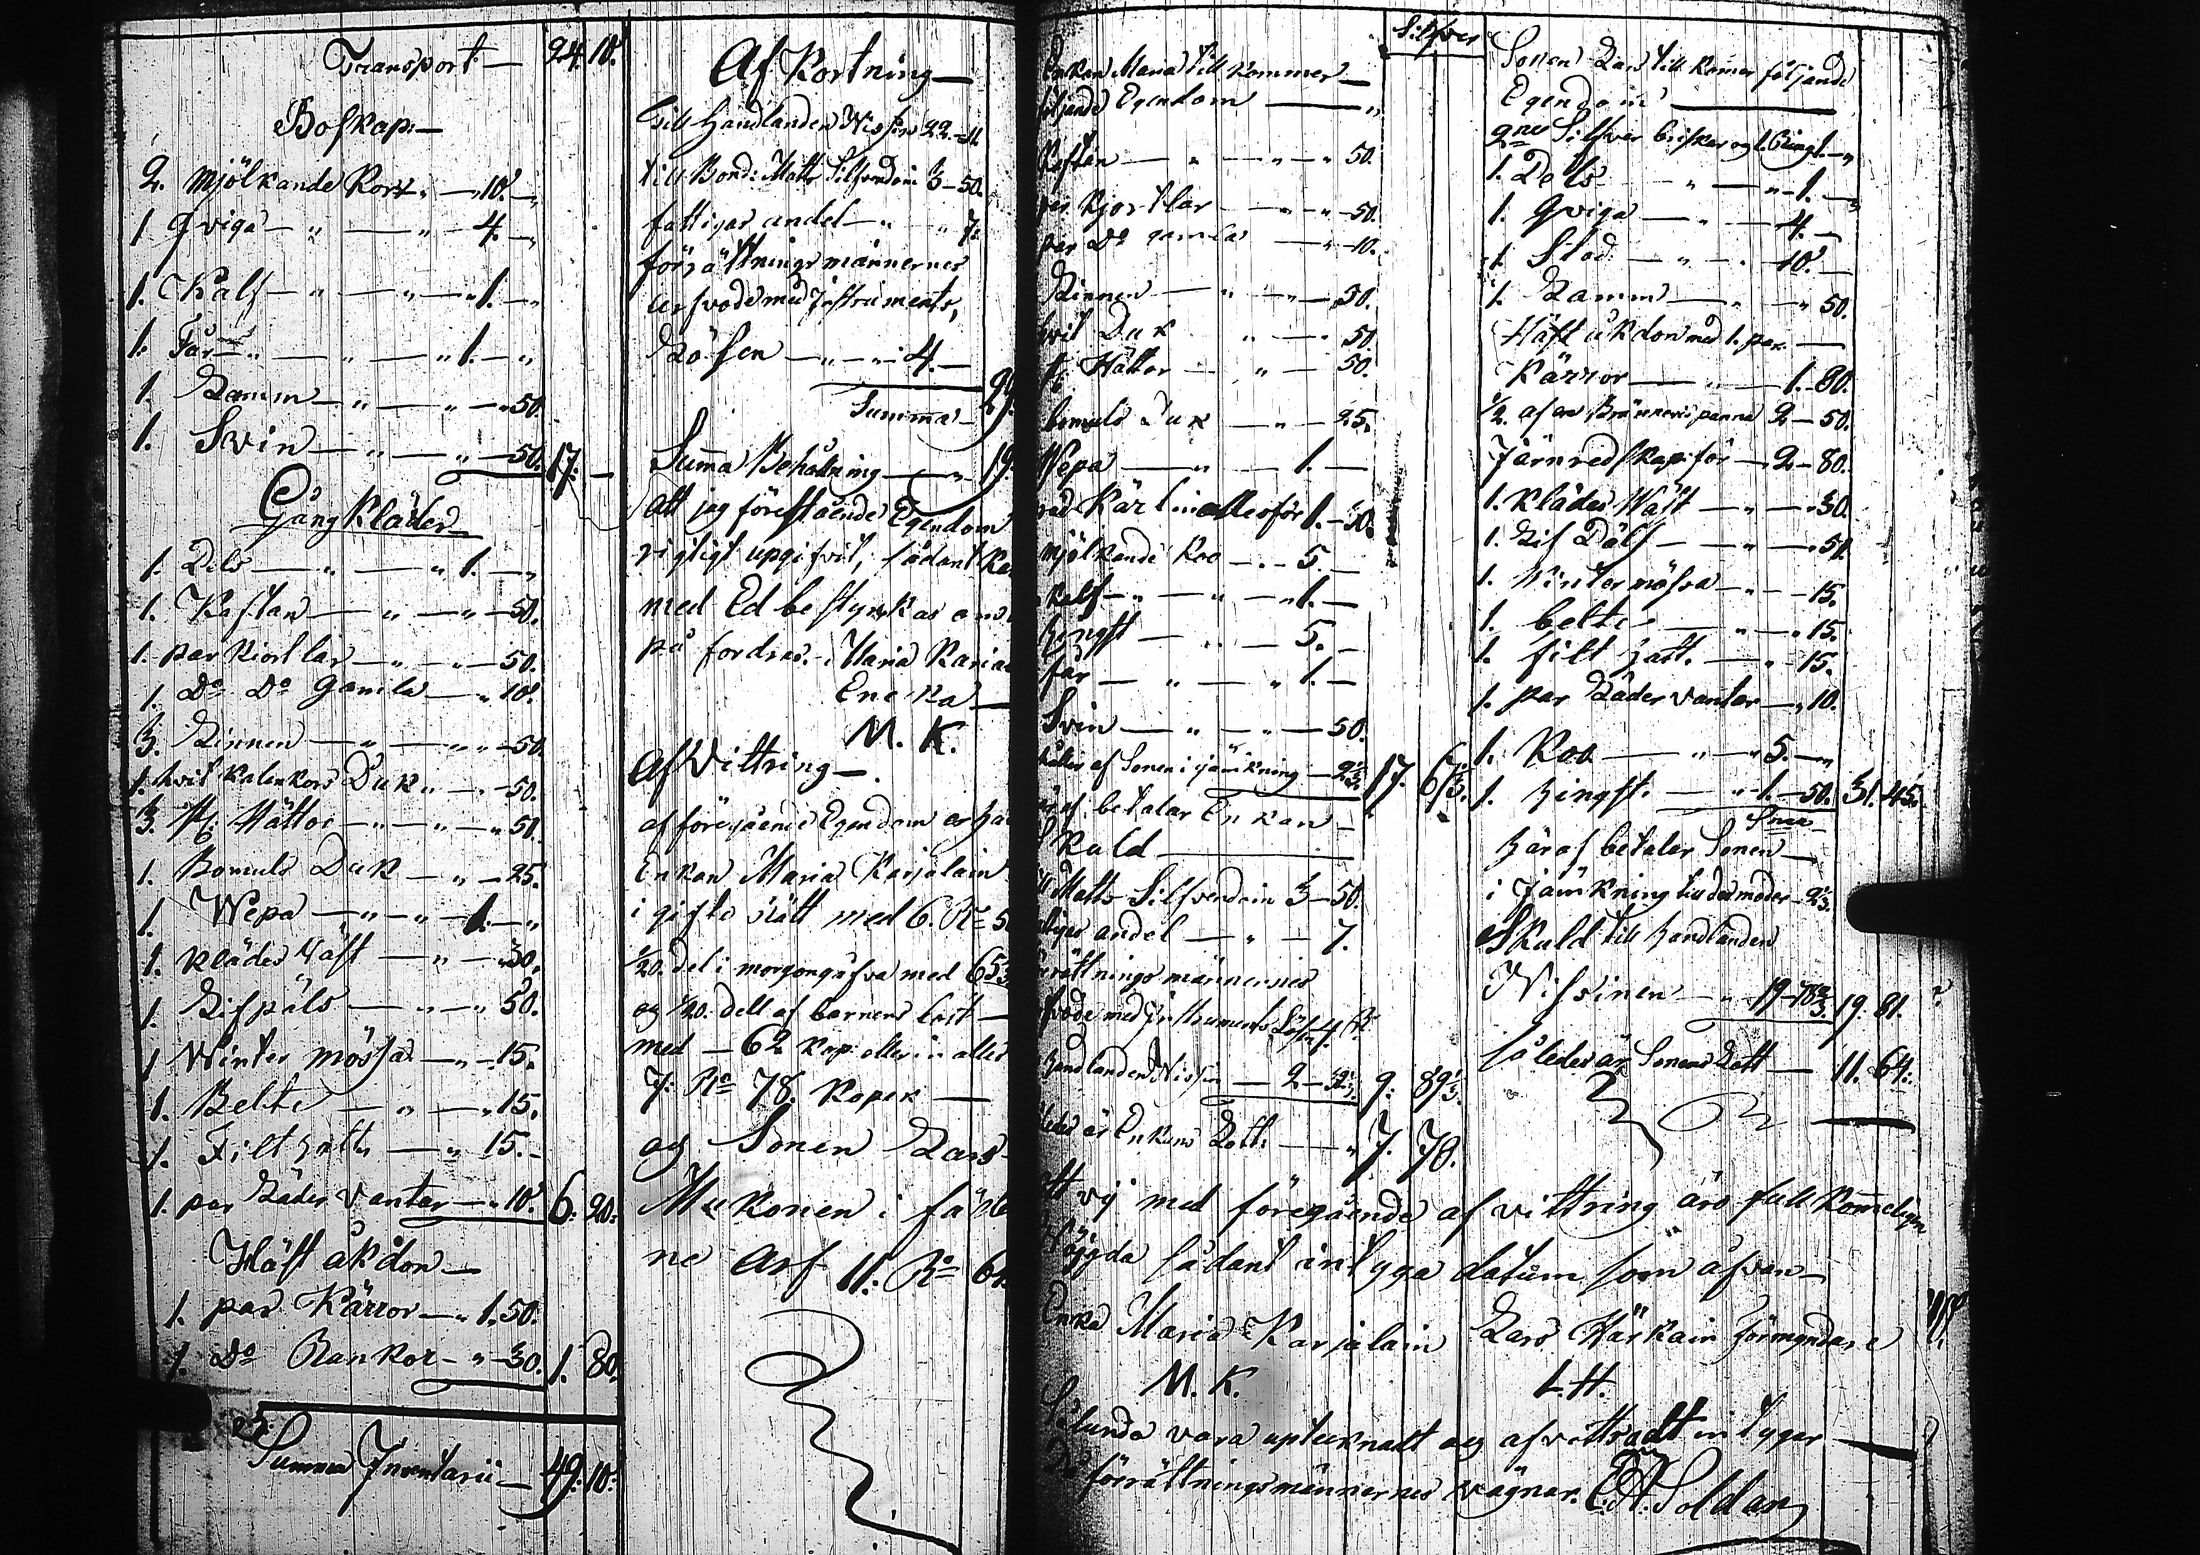 Transport — 24. 10.
Boskap: —
2. Mjölkande Kor — „ 10. — „
1. Qviga — „ — „ — 4. — „
1. Kalf — „ — „ — „ 1. — „
1. Får — „ — „ — „ 1. — „
1. Lamm — „ — „ — „ 50.
1. Svin — „ — „ — 50. 17. —
Gång Kläder
1. Pels — „ — „ 1. — „
1. Kaftan — „ — „ — 50.
1. par Kiortlar — „ — „ — 50.
1. Do Do Gamla — „ 10.
3. Linnen — „ — „ — 50.
1. hvit kalenkors Duk „ — „ 50.
3. Hättor — „ — „ — „ 50.
1. Bomuls Duk — „ — 25.
1. Wepa — „ — „ — 1. — „
1. kläder Wäst — „ — 30.
1. Lifpäls — „ — „ 50.
1 Winter mössa — „ — 15.
1. Belte — „ — „ 15.
1. Filt hatt — „ 15. —
1. par Läder vantar — „ 10. 6. 20.
Häst åkdon —
1. par Kärror — „ 1. 50.
1. Do Rankor — „ — 30. 1. 80.
Summa Inventarii — 49. 10.
Af Kortning —
till Handlanden 22. — 11.
till Bond: Matts Silfvendoin 3 — 50.
fattigas andel — „ „ 7.
förrättningsmännernes
arfvode med Instruments,
Lösen — „ — 4. —
Summa — 29.
Summa Behållning — „ — 19.
Att jag förestående Egendom
rigtigt upgifvit, sådant
med Ed bestyrkas
på fordras. — Maria
Encka —
M. K.
Af Vittring —
af föregående Egendom
Enkan Maria Karjalain
i gifto rätt med 6. Ro
1/20. del i morgongåfva med
og 1/20. dell af barnens lott —
med — 62 kop: eller in alles
7. Ro 78. Kopek —
og Sonen Lars
Mukonen i
ne Arf 11. Ro 64
Silfver
Enkan Maria till kommer —
följande Egendom — „
Kaftan — „ — „ — „ 50.
par Kjortlar — „ — „ — 50.
par Do gamla — „ — 10.
Linnen — „ — „ — „ 50.
hvit Duk „ — „ 50.
Hättor — „ — 50.
bomuls Duk — „ — 25.
Wepa — „ — 1. —
Kärl in alles för 1. — 50.
mjölkande Koo — „ — 5. —
kalf — „ — „ — „ 1. —
hingst — „ — 5. —
får — „ — „ 1. —
Svin — „ — „ — 50.
af Sonen i jämkning — 17. 6
betalar Enkan —
Skuld —
Matts Silfvendoin 3 — 50.
andel — „ — 7.
förrättningsmännernes
med Instruments Lösen 4. Ro
Handlanden — 2 — 9. 89
är Enkans Lott: — „ 7. 78.
Sonen Lars till komer följande
Egendom —
2ne Silfver brisker og 1. Ring 1. — „
1. Pels „ — „ — 1. — „
1. Qviga — „ — 4. —
1. Stod — „ — „ 10. —
1. Lamm — „ — „ 50.
Häst åkdon med 1. par —
Kärror — „ — 1. — 80.
1/2. af en Brännvinspanna 2 — 50.
Järnredskap för — 2 — 80.
1. kläder Wäst — „ — „ 30.
1. Lif Päls — „ — „ 50.
1. Winter mössa — „ — 15.
1. belte — „ — „ 15.
1. filt hatt. — „ — 15.
1. par Läder vantar — „ 10.
1. Koo — „ — „ 5. — „
1. hingst — „ 1. — 50. 31. 45.
Häraf betalar Sonen —
i Jämkning till des moder —
Skuld till Handlanden
19. 81.
således är Sonens Lott — 11. 64.
Att vij med föregående afvittring äro fullkomeligen
nöjgda sådant intyga datum som åfvan —
Enka Maria Karjalain Lars Härkain Förmyndare
M. K. L. H.
Sålunda vara uptecknatt og afvittradt intygar —
På förrättningsmännernes vägnar. E. A. Soldan